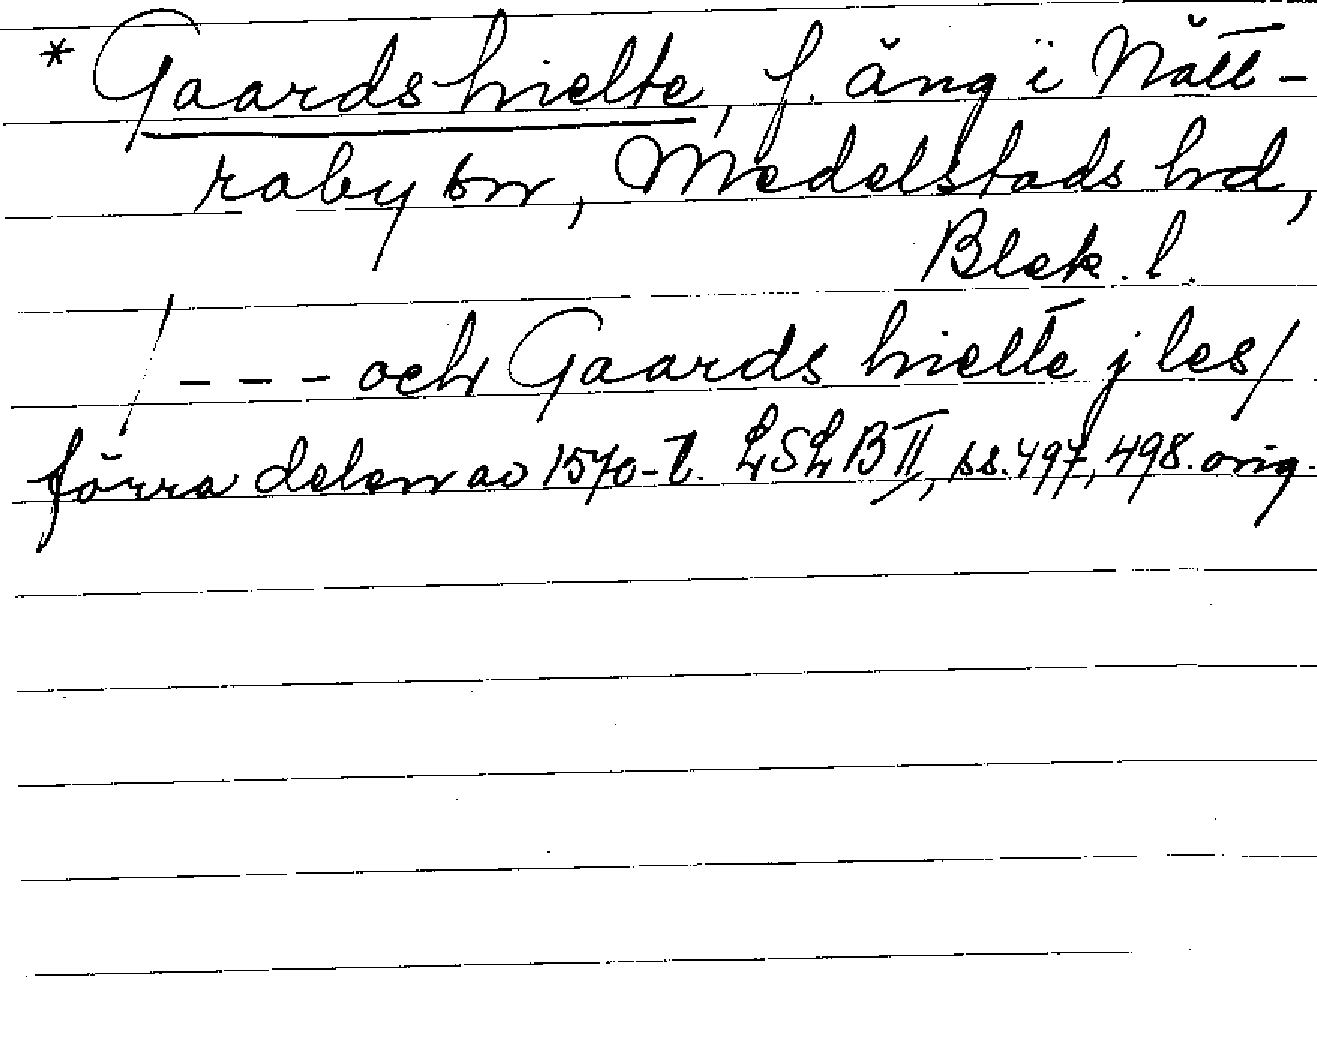 * Gaardshielte, f. äng i Nätt-
raby sn, Medelstads hd,
Blek. l.
/ - - - och Gaards hielte j les/
förra delen av 1570-t. LSLB II, ss. 497, 498. orig.